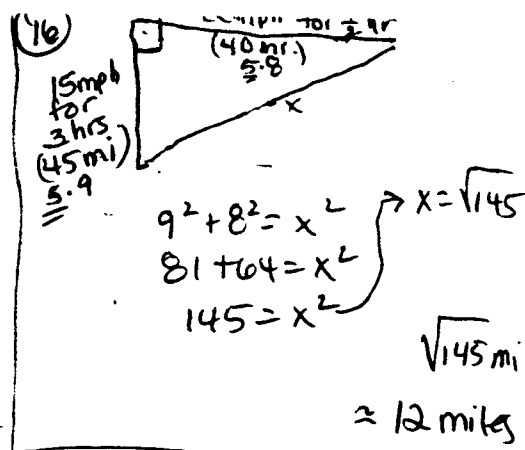 16
for ½ hr
(40 mi.)
5·8
15mph
for
3 hrs
(45mi)
5·9
x
9² + 8² = x²
81 + 64 = x²
145 = x²
x = √145
√145 mi
≈ 12 miles